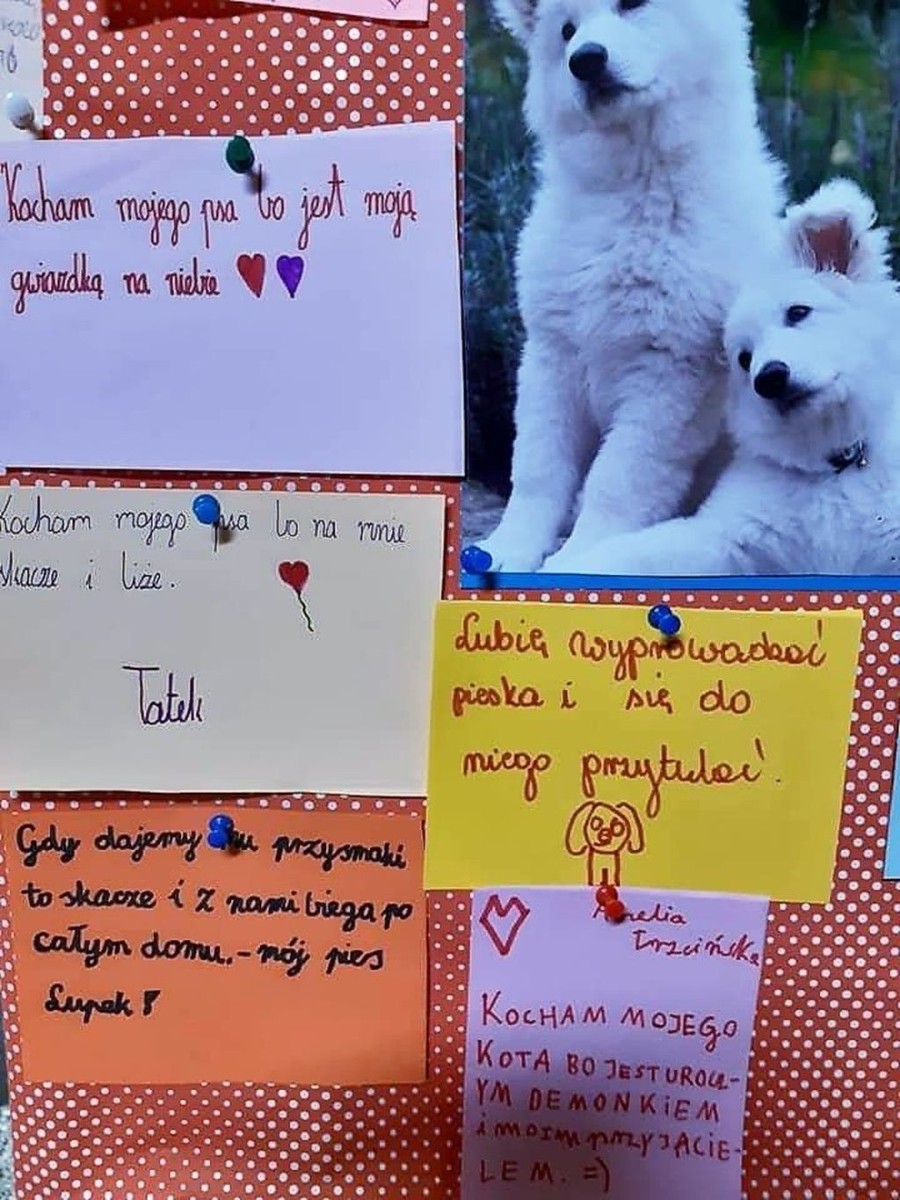 Kocham mojego psa bo jest moją
gwiazdką na niebie
Kocham mojego psa bo na mnie
skacze i liże.
Lubię wyprowadzać
pieska i się do
niego przytulać.
Gdy dajemy mu przysmaki
to skacze i z nami biega po
całym domu. - mój pies
Lupek!
KOCHAM MOJEGO
KOTA BO JEST UROCZ-
YM DEMONKIEM
i MOIM PRZYJACIE-
LEM. =)